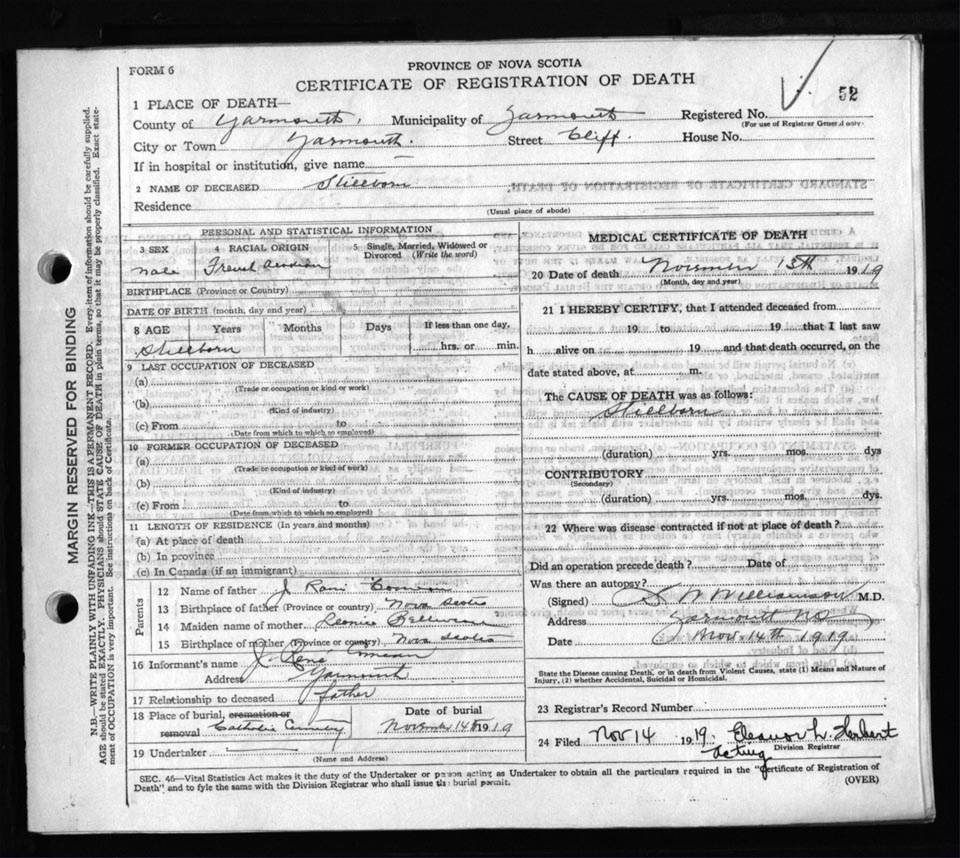 FORM 6
PROVINCE OF NOVA SCOTIA
CERTIFICATE OF REGISTRATION OF DEATH
52
1 PLACE OF DEATH—
County of Yarmouth, Municipality of Yarmouth Registered No.
(For use of Registrar General only)
City or Town Yarmouth. Street Cliff. House No.
If in hospital or institution, give name —
2 NAME OF DECEASED Stillborn
Residence
(Usual place of abode)
PERSONAL AND STATISTICAL INFORMATION
3 SEX 4 RACIAL ORIGIN 5 Single, Married, Widowed or Divorced (Write the word)
male French Acadian
BIRTHPLACE (Province or Country)
DATE OF BIRTH (month, day and year)
8 AGE Years Months Days If less than one day,
Stillborn hrs. or min.
9 LAST OCCUPATION OF DECEASED
(a)
(Trade or occupation or kind or work)
(b)
(Kind of industry)
(c) From to
(Date from which to which so employed)
10 FORMER OCCUPATION OF DECEASED
(a)
(Trade or occupation or kind of work)
(b)
(Kind of industry)
(c) From to
(Date from which to which so employed)
11 LENGTH OF RESIDENCE (In years and months)
(a) At place of death
(b) In province
(c) In Canada (if an immigrant)
Parents
12 Name of father J.
13 Birthplace of father (Province or country) Nova Scotia
14 Maiden name of mother
15 Birthplace of mother (Province or country) Nova Scotia
16 Informant's name J. René
Address Yarmouth
17 Relationship to deceased father
18 Place of burial, cremation or removal Catholic Cemetery
Date of burial
November 14th 1919
19 Undertaker
(Name and Address)
MEDICAL CERTIFICATE OF DEATH
20 Date of death November 13th 1919
(Month, day and year)
21 I HEREBY CERTIFY, that I attended deceased from
19 to 19 that I last saw
h alive on 19 and that death occurred, on the
date stated above, at m.
The CAUSE OF DEATH was as follows:
Stillborn
(duration) yrs. mos. dys
CONTRIBUTORY
(Secondary)
(duration) yrs. mos. dys.
22 Where was disease contracted if not at place of death?
Did an operation precede death? Date of
Was there an autopsy?
(Signed) S W Williamson M.D.
Address Yarmouth NS
Date Nov. 14th 1919
State the Disease causing Death, or in death from Violent Causes, state (1) Means and Nature of
Injury, (2) whether Accidental, Suicidal or Homicidal.
23 Registrar's Record Number
24 Filed Nov 14 1919. Eleanor L. Herbert
Acting Division Registrar
SEC. 46—Vital Statistics Act makes it the duty of the Undertaker or person acting as Undertaker to obtain all the particulars required in the "Certificate of Registration of
Death" and to fyle the same with the Division Registrar who shall issue the burial permit.
(OVER)
MARGIN RESERVED FOR BINDING
N.B.—WRITE PLAINLY WITH UNFADING INK—THIS IS A PERMANENT RECORD. Every item of information should be carefully supplied.
AGE should be stated EXACTLY. PHYSICIANS should STATE CAUSE OF DEATH in plain terms, so that it may be properly classified. Exact state-
ment of OCCUPATION is very important. See instructions on back of Certificate.